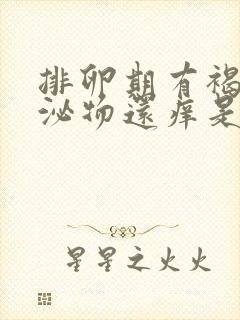 排卵期有褐
泌物還痒是
星星之火火